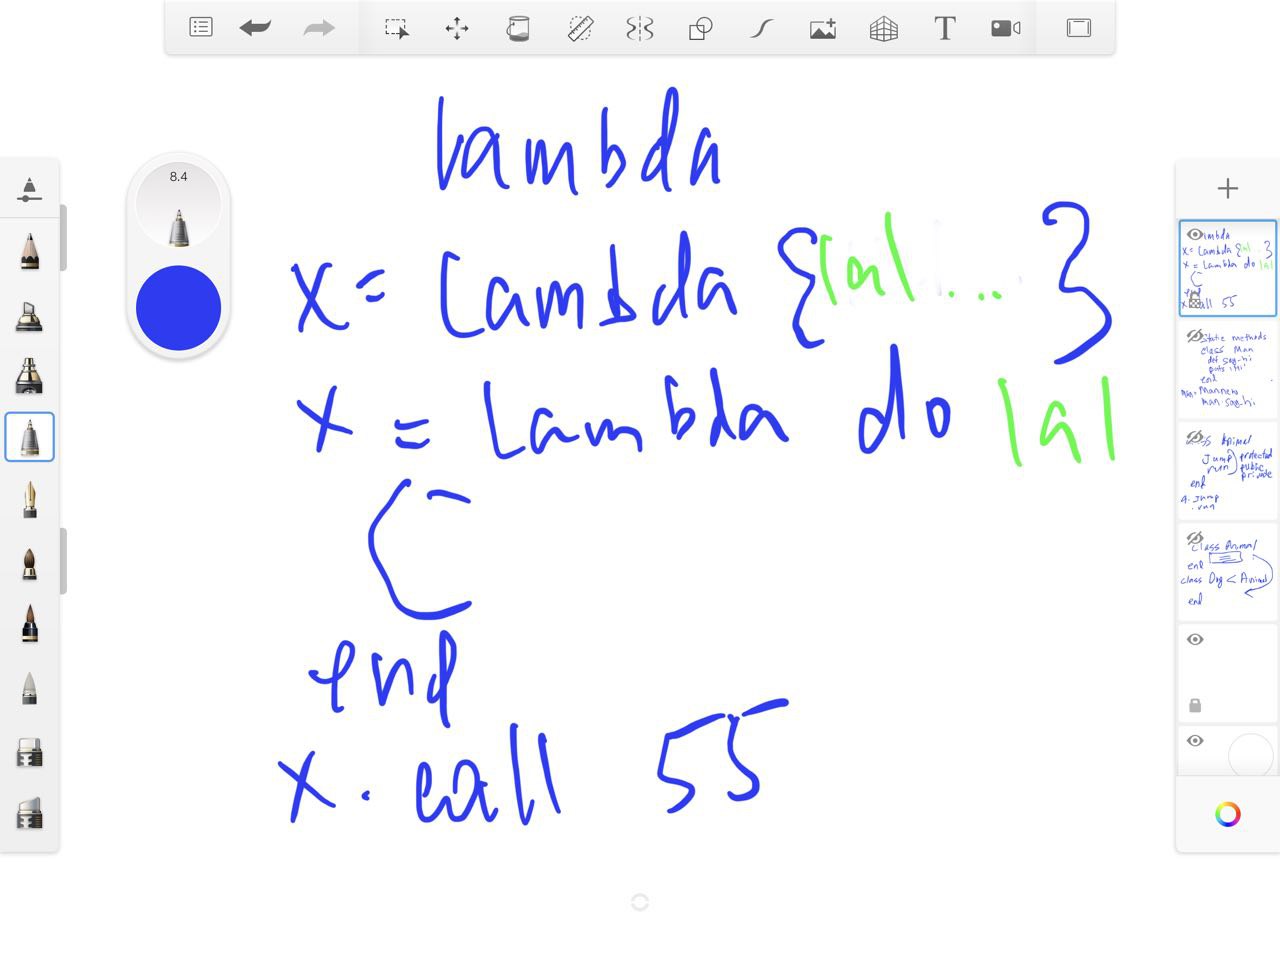 8.4
lambda
x = lambda { |a| ... }
x = lambda do |a|
end
x. call 55
T
ambda
x = lambda { |a| }
x = lambda do |a|
end
call 55
Static methods
class Man
def say-hi
puts 'hi'
end
man.say-hi
Animal
Jump protected
run public
private
end
Jump
.run
class Animal
end
class Dog < Animal
end